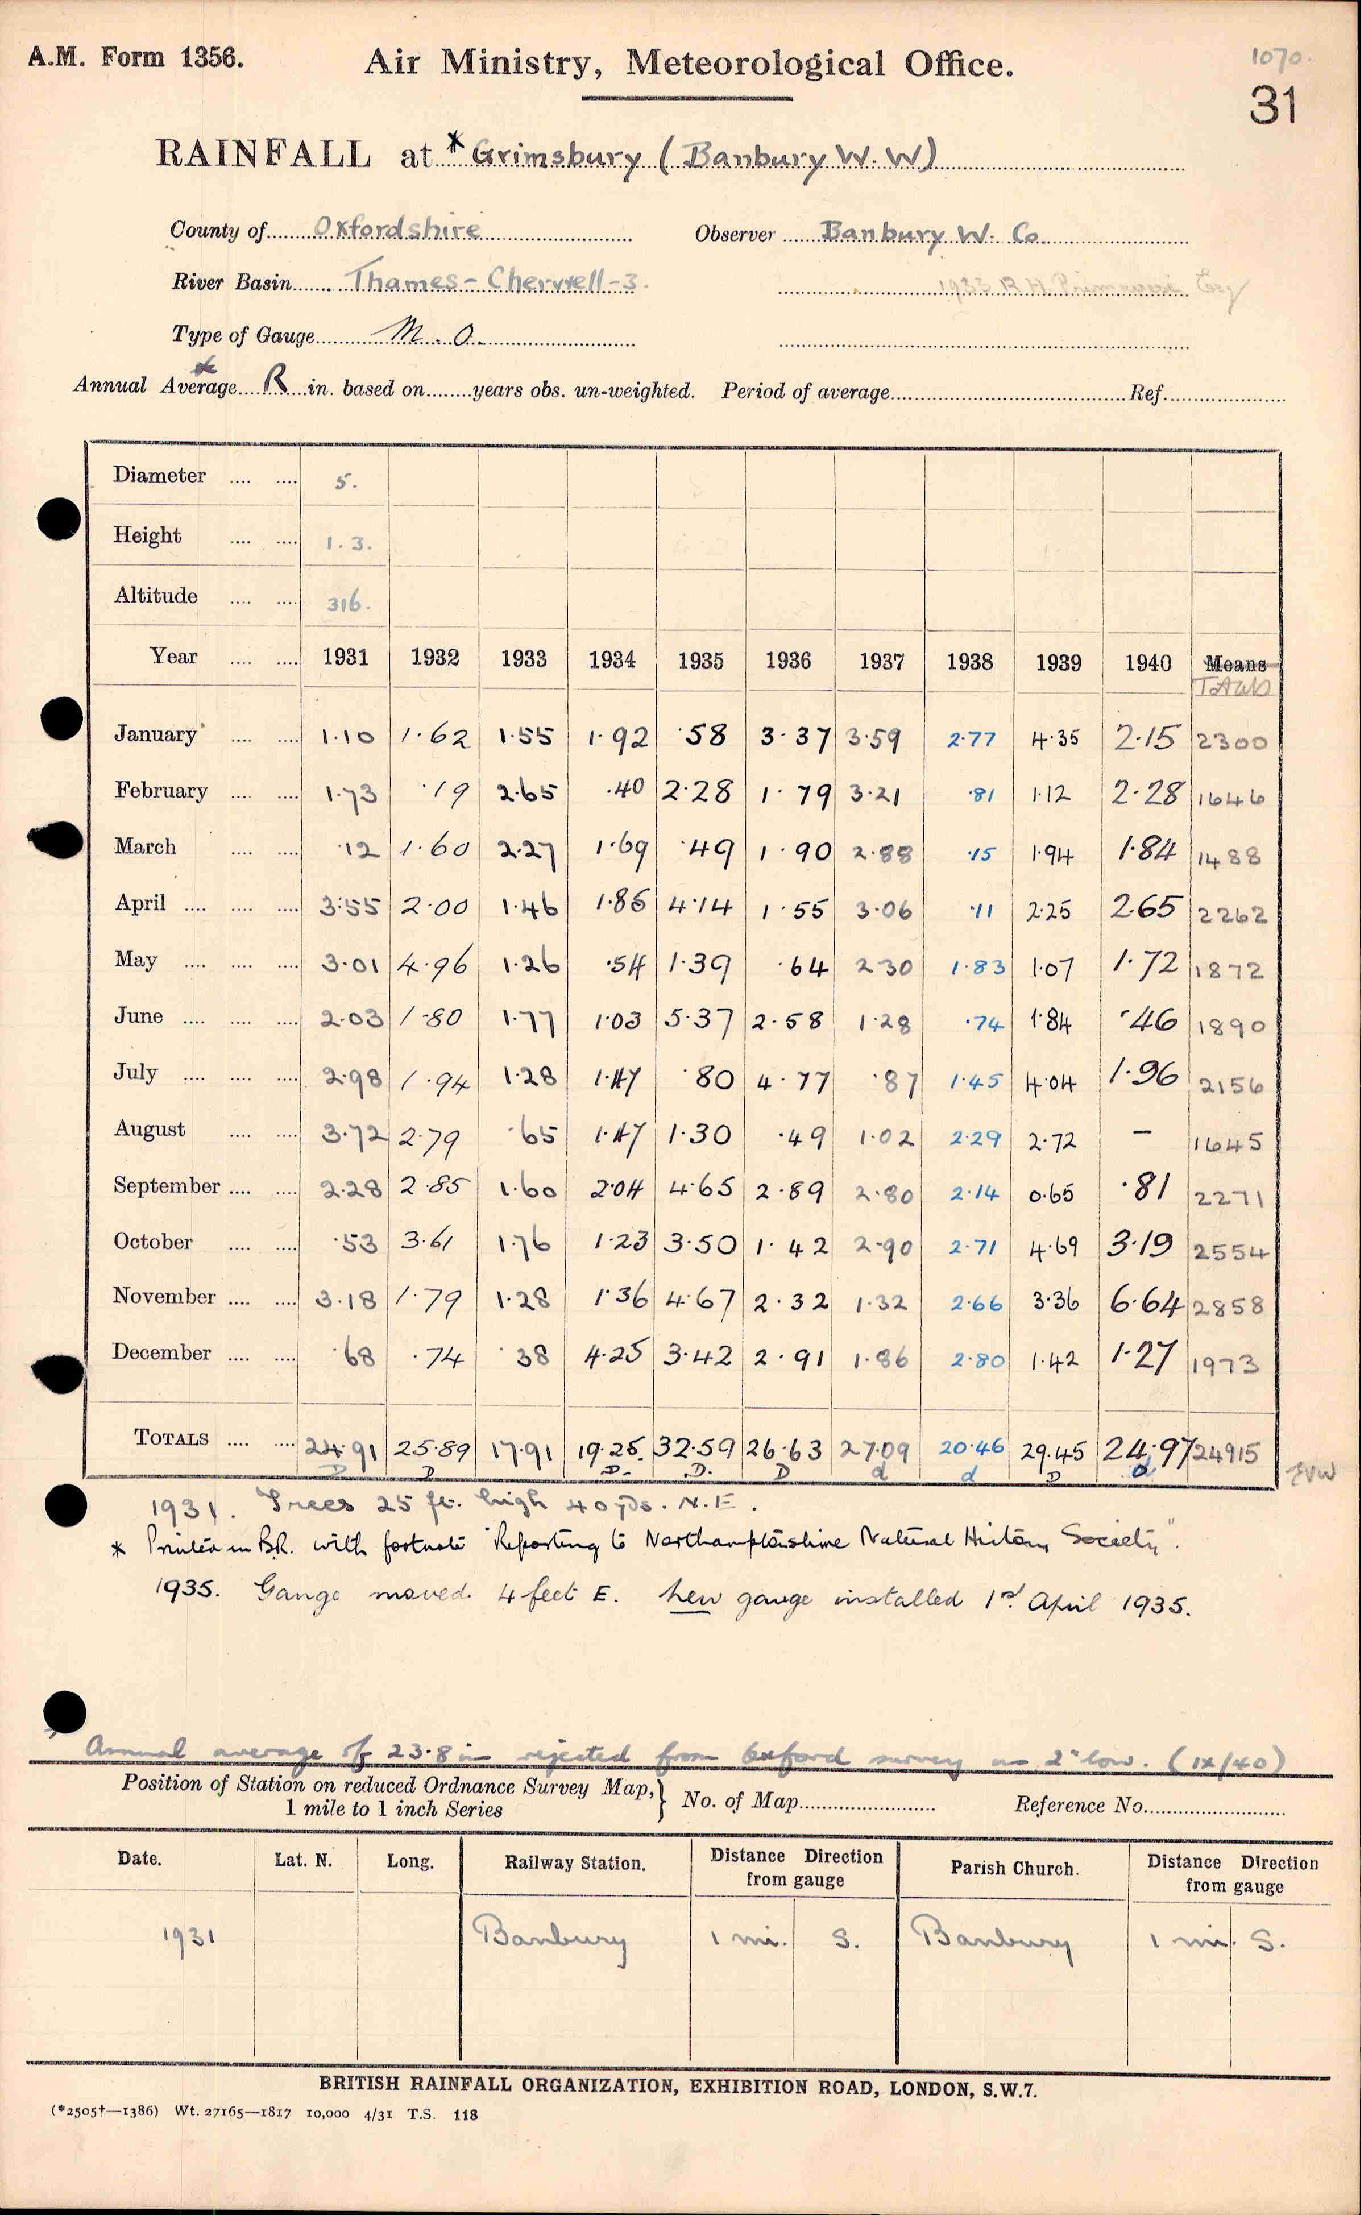 A.M. Form 1356.
Air Ministry, Meteorological Office.
1070.
31
RAINFALL at *Grimsbury (Banbury W. W)
County of Oxfordshire Observer Banbury W. Co
River Basin Thames - Cherwell - 3. 1933 R H Esq
Type of Gauge M. O.
Annual Average * R in. based on years obs. un-weighted. Period of average Ref.
Diameter 5.
Height 1. 3.
Altitude 316.
Year 1931 1932 1933 1934 1935 1936 1937 1938 1939 1940 Means
Totals
January 1·10 1·62 1·55 1·92 ·58 3·37 3·59 2·77 4·35 2·15 2300
February 1·73 ·19 2·65 ·40 2·28 1·79 3·21 ·81 1·12 2·28 1646
March ·12 1·60 2·27 1·69 ·49 1·90 2·88 ·15 1·94 1·84 1488
April 3·55 2·00 1·46 1·85 4·14 1·55 3·06 ·11 2·25 2·65 2262
May 3·01 4·96 1·26 ·54 1·39 ·64 2·30 1·83 1·07 1·72 1872
June 2·03 1·80 1·77 1·03 5·37 2·58 1·28 ·74 1·84 ·46 1890
July 2·98 1·94 1·28 1·47 ·80 4·77 ·87 1·45 4·04 1·96 2156
August 3·72 2·79 ·65 1·47 1·30 ·49 1·02 2·29 2·72 — 1645
September 2·28 2·85 1·60 2·04 4·65 2·89 2·80 2·14 0·65 ·81 2271
October ·53 3·61 1·76 1·23 3·50 1·42 2·90 2·71 4·69 3·19 2554
November 3·18 1·79 1·28 1·36 4·67 2·32 1·32 2·66 3·36 6·64 2858
December ·68 ·74 ·38 4·25 3·42 2·91 1·86 2·80 1·42 1·27 1973
TOTALS 24·91 25·89 17·91 19·25 32·59 26·63 27·09 20·46 29·45 24·97 24915
D D D D D d d D d EVW
1931. Trees 25 ft. high 40 yds. N.E.
* Printed in B.R. with footnote "Reporting to Northamptonshire Natural History Society".
1935. Gauge moved 4 feet E. New gauge installed 1st April 1935.
* Annual average of 23·8 in rejected from Oxford survey as 2" low. (ix/40)
Position of Station on reduced Ordnance Survey Map,} No. of Map Reference No.
1 mile to 1 inch Series
Date. Lat. N. Long. Railway Station. Distance Direction from gauge Parish Church. Distance Direction from gauge
1931 Banbury 1 mi. S. Banbury 1 mi. S.
BRITISH RAINFALL ORGANIZATION, EXHIBITION ROAD, LONDON, S.W.7.
(*2505†—1386) Wt. 27165—1817 10,000 4/31 T.S. 118